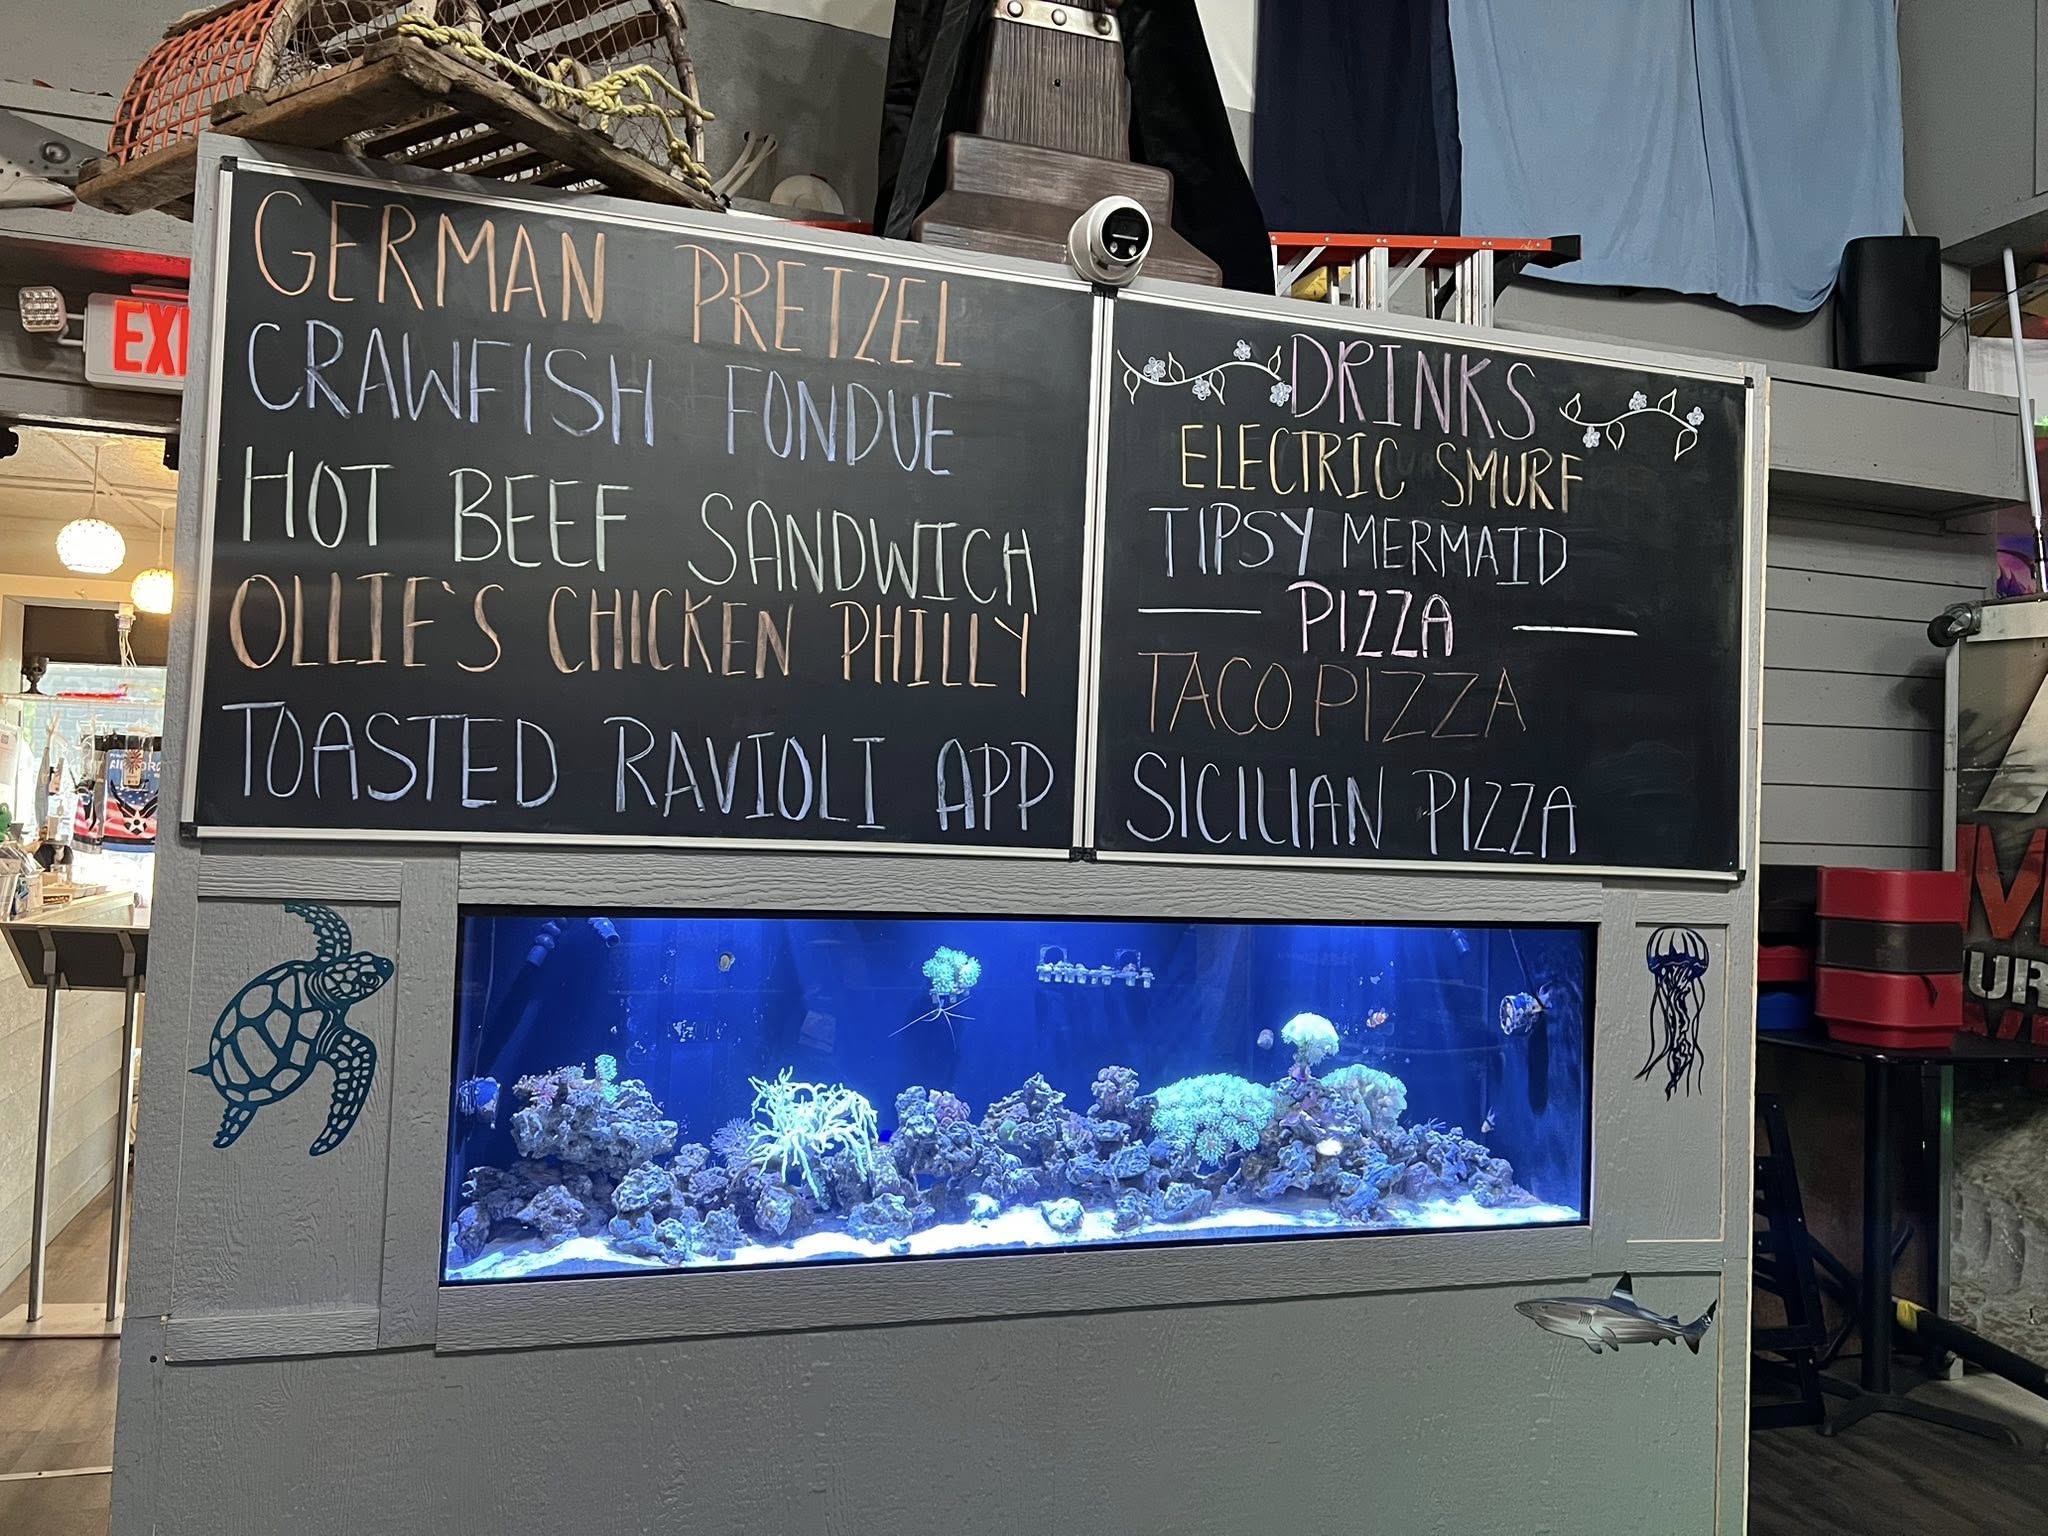 GERMAN PRETZEL
CRAWFISH FONDUE
HOT BEEF SANDWICH
OLLIE'S CHICKEN PHILLY
TOASTED RAVIOLI APP
DRINKS
ELECTRIC SMURF
TIPSY MERMAID
PIZZA
TACO PIZZA
SICILIAN PIZZA
EXI